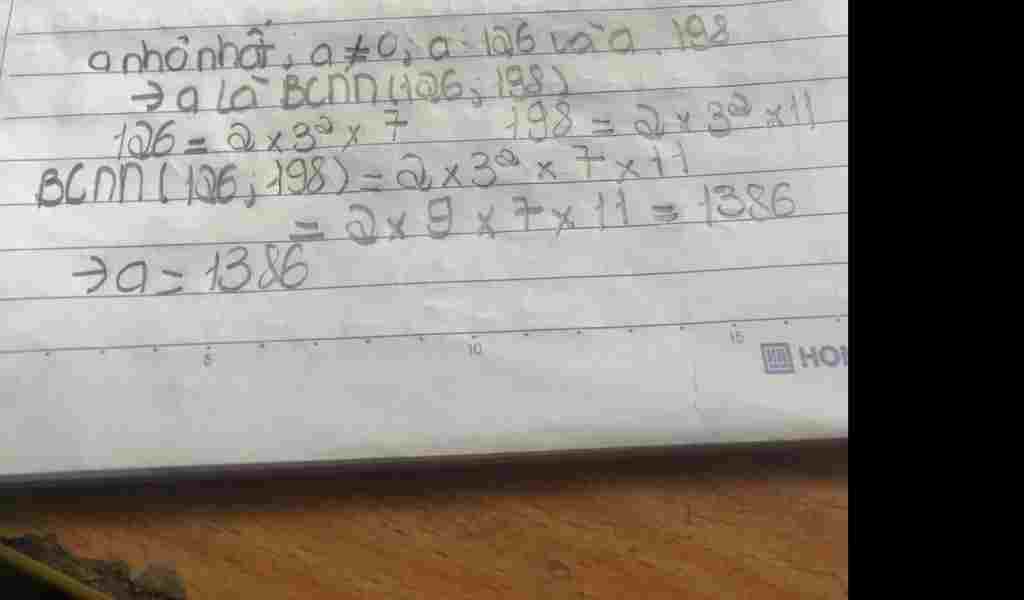 a nhỏ nhất, a ≠ 0; a ⋮ 126 và a ⋮ 198
→ a là BCNN(126; 198)
126 = 2 × 3² × 7 198 = 2 × 3² × 11
BCNN(126; 198) = 2 × 3² × 7 × 11
= 2 × 9 × 7 × 11 = 1386
→ a = 1386
5 10 15